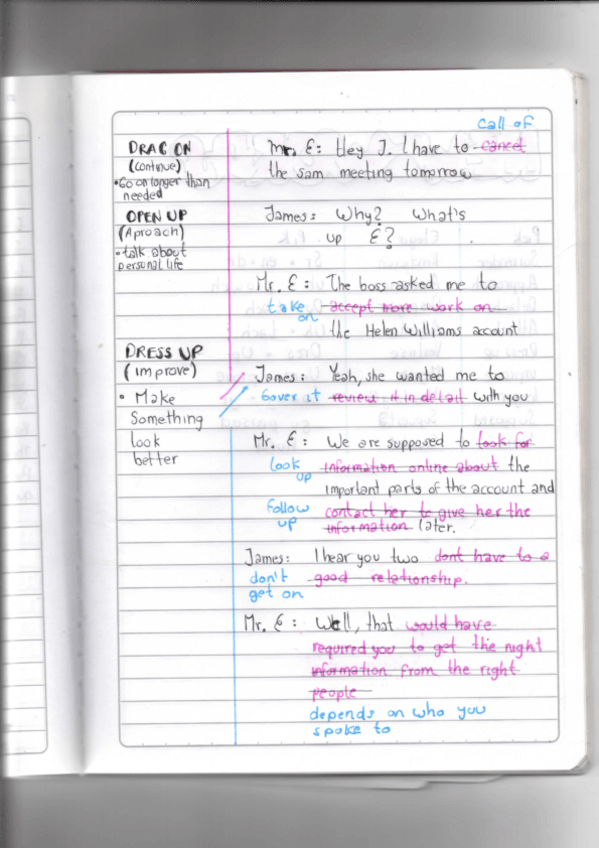 Call of
DRAG ON
(continue)
• Go on longer than
needed
OPEN UP
(Aproach)
• talk about
personal life
DRESS UP
(improve)
• Make
Something
look
better
Mr. E: Hey J. I have to cancel
the sam meeting tomorrow
James: Why? What's
up E?
Mr. E: The boss asked me to
take on accept more work on
the Helen Williams account
James: Yeah, she wanted me to
Gover it review it in detail with you
Mr. E: We are supposed to look for
look up information online about the
important parts of the account and
follow up contact her to give her the
information later.
James: I hear you two dont have to a
don't get on good relationship.
Mr. E: Well, that would have
required you to get the night
information from the right
people
depends on who you
spoke to